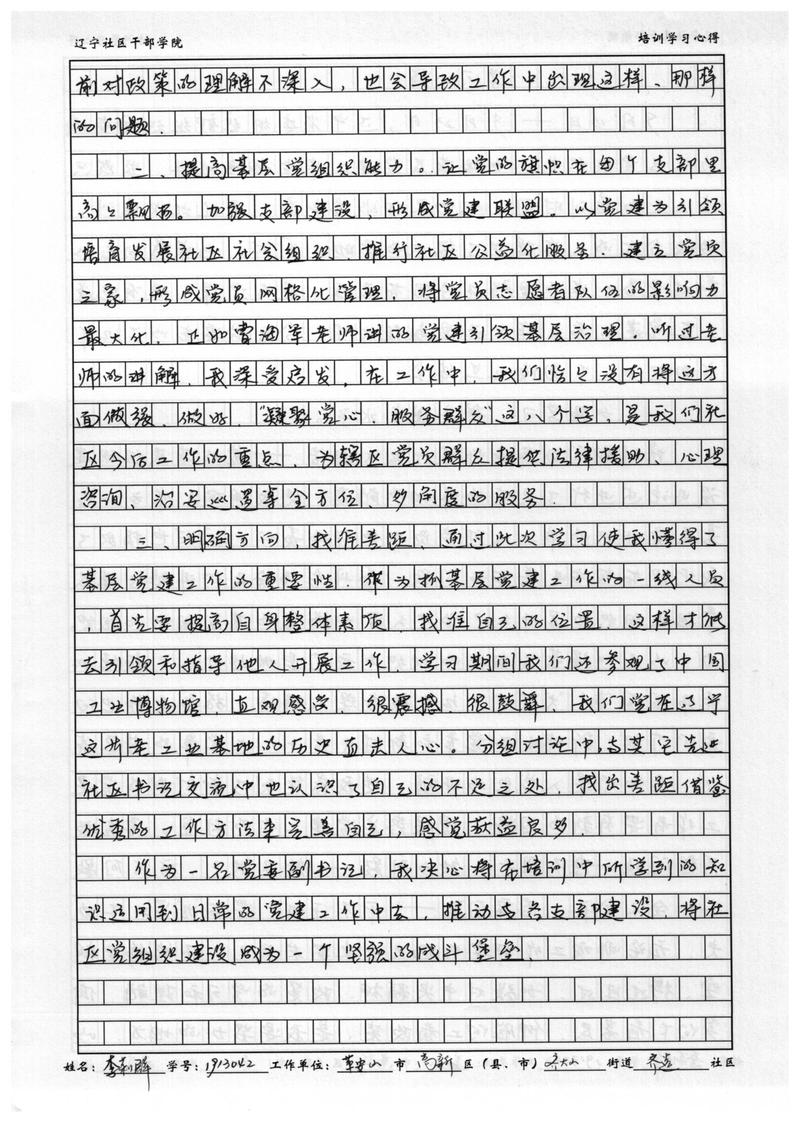 辽宁社区干部学院 培训学习心得
前对政策的理解不深入，也会导致工作中出现这样、那样
的问题.
二、提高基层党组织能力。让党的旗帜在每个支部里
高高飘扬。加强支部建设，形成党建联盟。以党建为引领
培育发展社区社会组织、推行社区公益化服务.建立党员
之家，形成党员网格化管理.将党员志愿者队伍的影响力
最大化.正如曹海军老师讲的党建引领基层治理.听过老
师的讲解.我深受启发.在工作中.我们恰恰没有将这方
面做强、做好."凝聚党心.服务群众"这八个字.是我们社
区今后工作的重点.为辖区党员群众提供法律援助、心理
咨询、治安巡逻等全方位、多角度的服务.
三、明确方向，找准差距.通过此次学习使我懂得了
基层党建工作的重要性.作为抓基层党建工作的一线人员
，首先要提高自身整体素质、找准自己的位置.这样才能
去引领和指导他人开展工作.学习期间我们还参观了中国
工业博物馆.直观感受.很震撼.很鼓舞.我们党在辽宁
这片老工业基地的历史直击人心。分组讨论中.与其它先进
社区书记交流中也认识了自己的不足之处.找出差距借鉴
优秀的工作方法来完善自己，感觉获益良多.
作为一名党委副书记.我决心将在培训中所学到的知
识运用到日常的党建工作中去，推动支部建设.将社
区党组织建设成为一个坚强的战斗堡垒.
姓名： 学号：1913042 工作单位：鞍山 市 高新 区（县、市） 齐大山 街道 社区